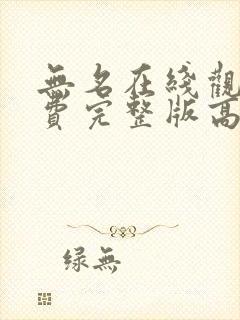 無名在綫觀
費完整版高
绿無